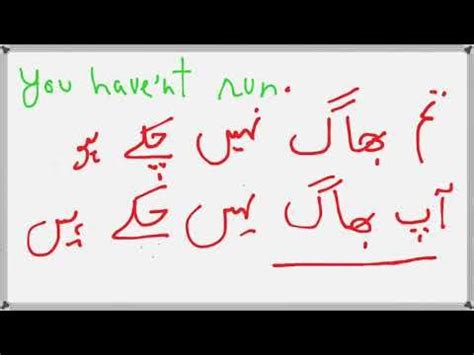 You have'nt run.
تم بھاگ نہیں چکے ہو
آپ بھاگ نہیں چکے ہیں